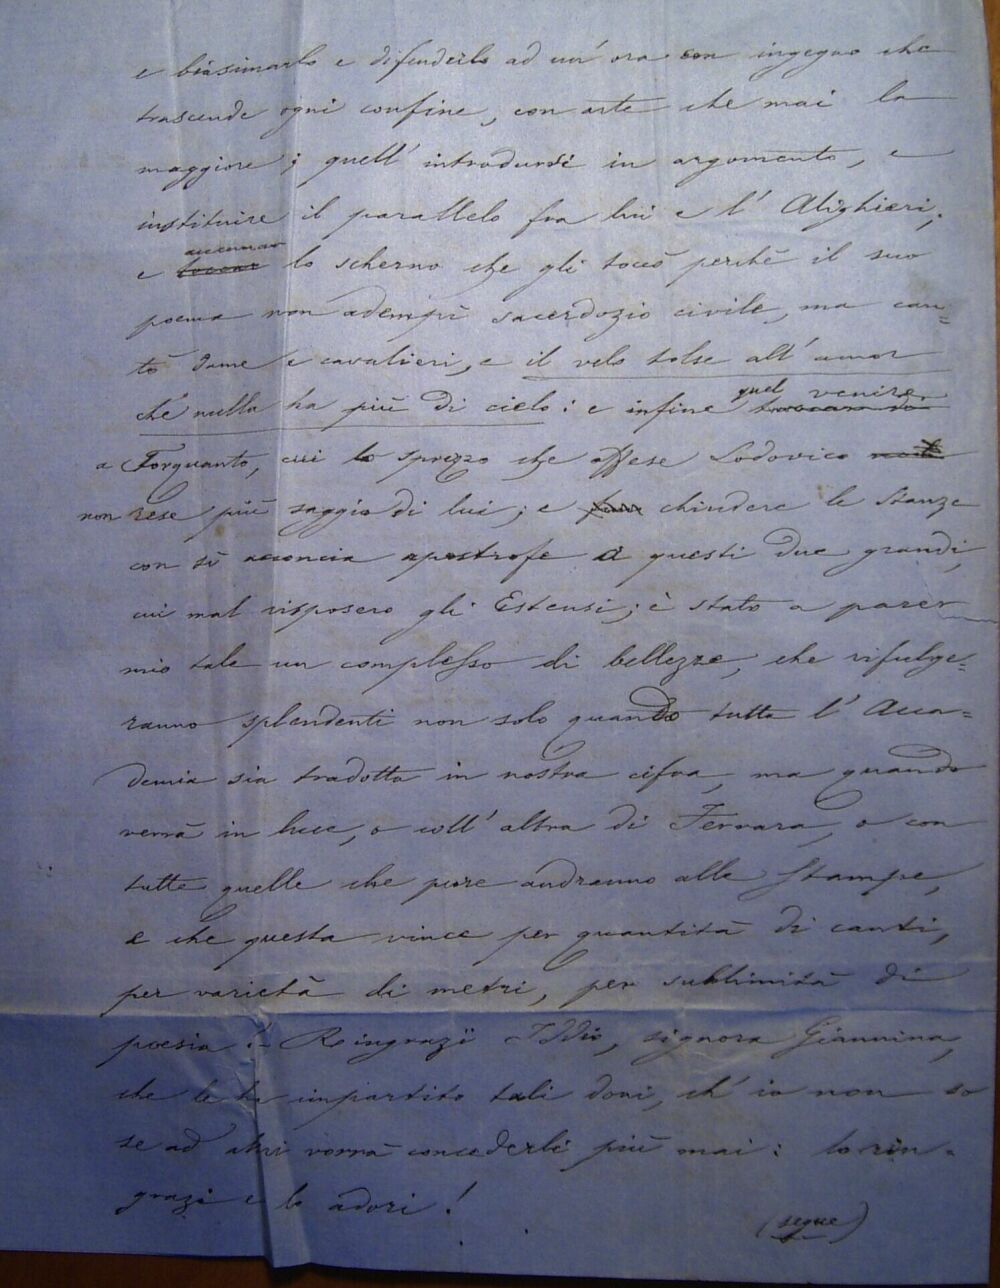 e biasimarlo e difenderlo ad un' ora con ingegno che
trascende ogni confine, con arte che mai la
maggiore; quell' introdursi in argomento, e
instituire il parallelo fra lui e l' Alighieri,
accennar
e toccar lo scherno che gli toccò perchè il suo
poema non adempì sacerdozio civile, ma can-
tò dame e cavalieri, e il velo tolse all' amor
che nulla ha più di cielo: e infine quel venire
a Torquanto, cui lo sprezzo che offese Lodovico
non rese più saggio di lui; e chiudere le Stanze
con sì acconcia apostrofe a questi due grandi,
cui mal risposero gli Estensi; è stato a parer
mio tale un complesso di bellezze, che rifulge-
ranno splendenti non solo quando tutta l' Acca-
demia sia tradotta in nostra cifra, ma quando
verrà in luce, o coll' altra di Ferrara, o con
tutte quelle che pure andranno alle Stampe,
e che questa vince per quantità di canti,
per varietà di metri, per sublimità di
poesia. - Ringrazï Iddio, signora Giannina,
che le ha impartito tali doni, ch' io non so
se ad altri vorrà concederli più mai: lo rin-
grazi e lo adori!
(segue)